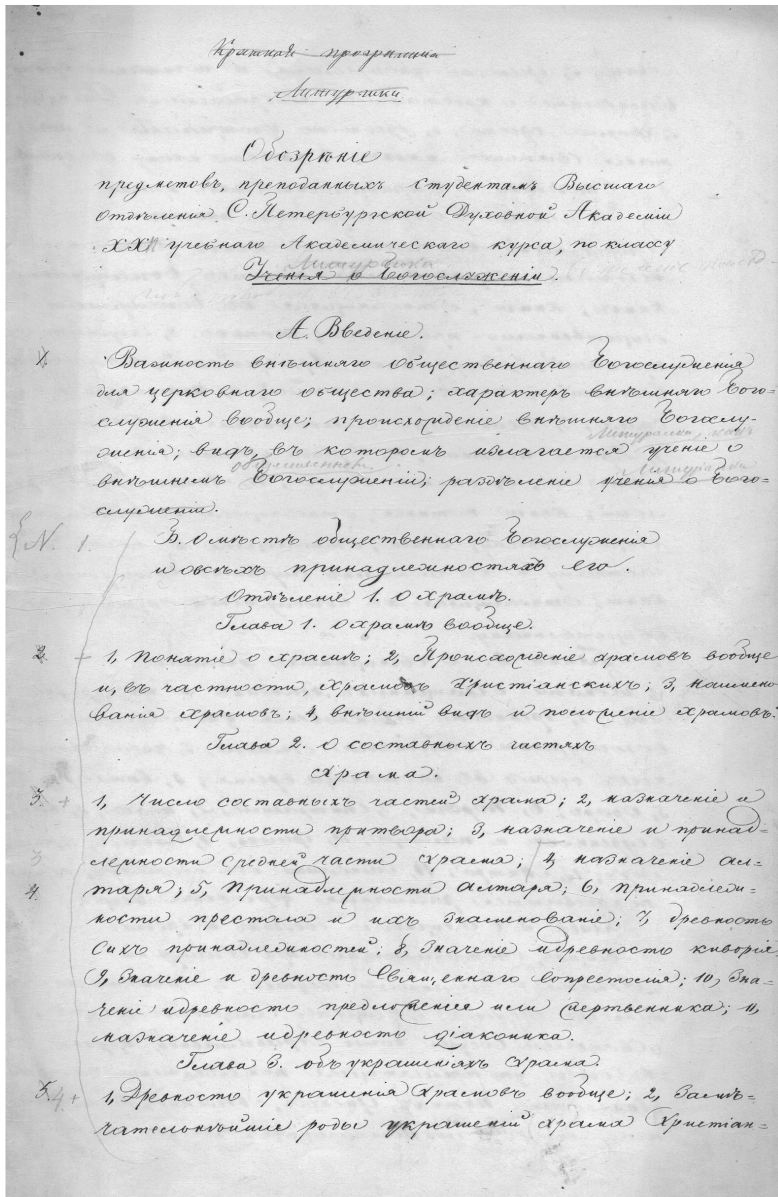 Краткая программа
Литургики
Обозрѣніе
предметовъ, преподанныхъ студентамъ Высшаго
отдѣленія С. Петербургской Духовной Академіи
XXII учебнаго Академическаго курса, по классу
Литургика
Ученія о Богослуженіи.
А. Введеніе.
1. Важность внѣшняго общественнаго Богослуженія
для церковнаго общества; характеръ внѣшняго Бого=
служенія вообще; происхожденіе внѣшняго Богослу-
Литургика, какъ
женія; видъ, въ которомъ излагается ученіе о
общественномъ Литургика
внѣшнемъ Богослуженіи; раздѣленіе ученія о Бого=
служеніи.
N. 1. Б. О мѣстѣ общественнаго Богослуженія
и о всѣхъ принадлежностяхъ его.
Отдѣленіе 1. О храмѣ.
Глава 1. О храмѣ вообще.
2. + 1, Понятіе о храмѣ; 2, Происхожденіе храмовъ вообще
и, въ частности, храмовъ Христіанскихъ; 3, наимено
ванія храмовъ; 4, внѣшній видъ и положеніе храмовъ.
Глава 2. О составныхъ частяхъ
храма.
3. + 1, Число составныхъ частей храма; 2, назначеніе и
принадлежности притвора; 3, назначеніе и принад=
3 лежности средней части храма; 4, назначеніе ал=
4. таря; 5, Принадлежности алтаря; 6, принадлеж=
ности престола и ихъ знаменованіе; 7, древность
сихъ принадлежностей; 8, значеніе и древность киворія
9, Значеніе и древность Священнаго сопрестолія; 10, Зна=
ченіе и древность предложенія или жертвенника; 11,
назначеніе и древность діаконика.
Глава 3. объ украшеніяхъ храма.
5. 4 + 1, Древность украшенія храмовъ вообще; 2, Замѣ=
чательнѣйшіе роды украшеній храма Христіан=